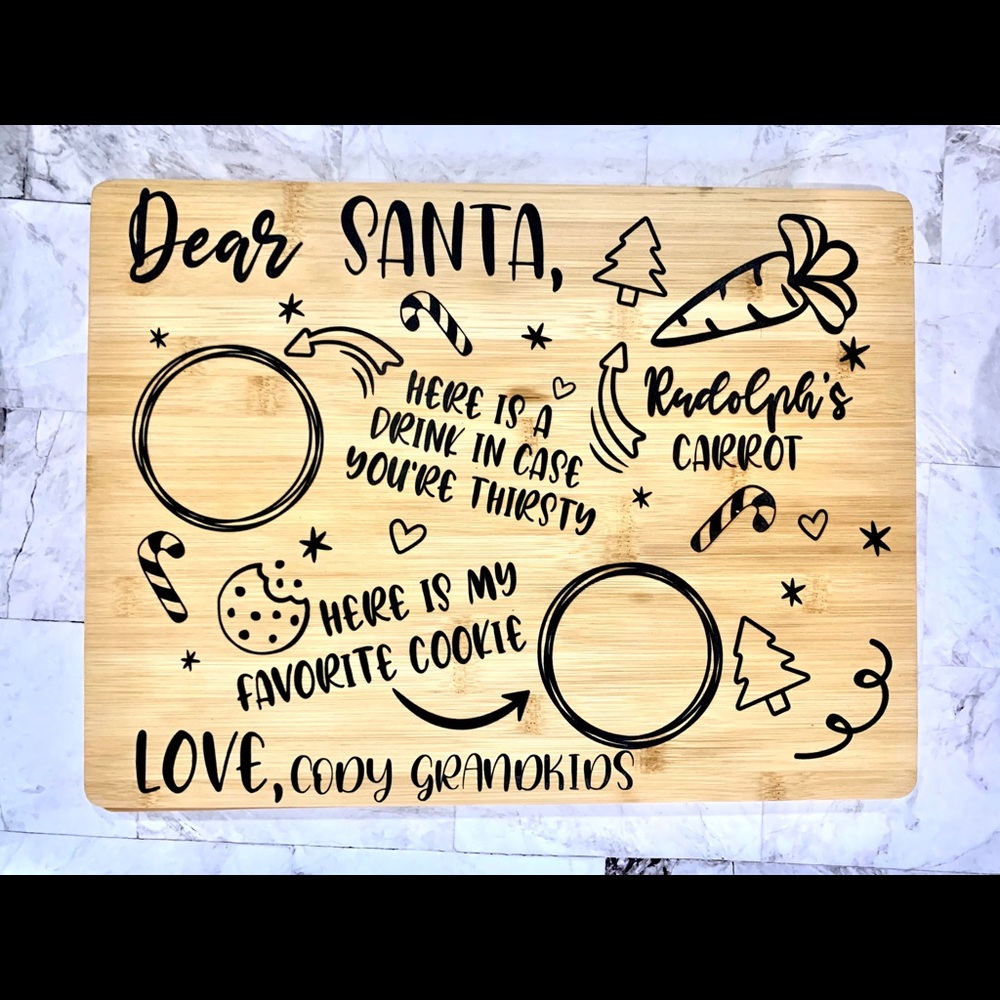 Dear SANTA,
HERE IS A
DRINK IN CASE
YOU'RE THIRSTY
Rudolph's
CARROT
HERE IS MY
FAVORITE COOKIE
LOVE, CODY GRANDKIDS